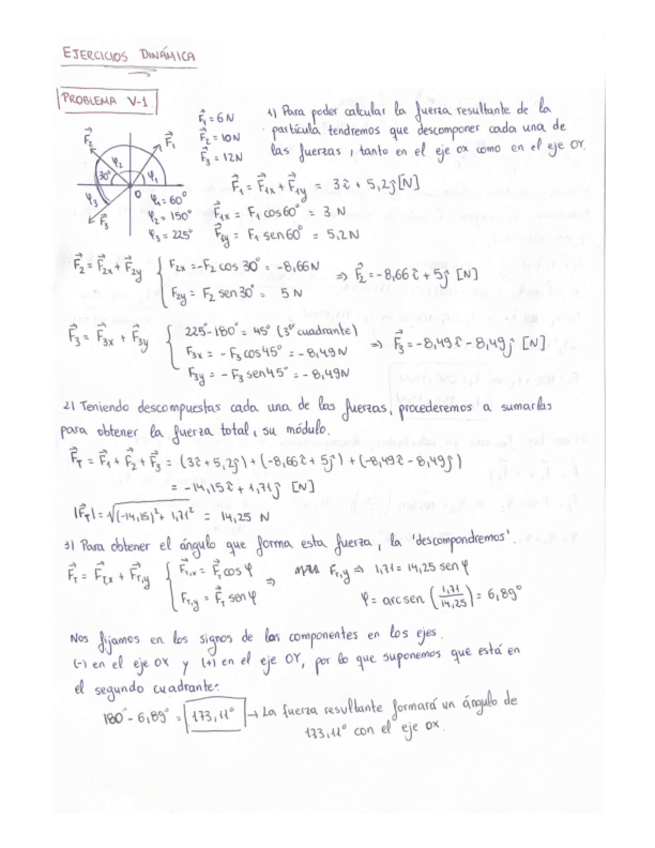 EJERCICIOS DINÁMICA
PROBLEMA V-1
F⃗₁ = 6N
F⃗₂ = 10N
F⃗₃ = 12N
1) Para poder calcular la fuerza resultante de la
partícula tendremos que descomponer cada una de
las fuerzas, tanto en el eje OX como en el eje OY.
F⃗₂ F⃗₁ φ₂ 30° φ₁ φ₃ O F⃗₃
φ₁ = 60°
φ₂ = 150°
φ₃ = 225°
F⃗₁ = F⃗₁ₓ + F⃗₁y = 3î + 5,2ĵ [N]
F⃗₁ₓ = F₁ cos 60° = 3 N
F⃗₁y = F₁ sen 60° = 5,2N
F⃗₂ = F⃗₂ₓ + F⃗₂y { F₂ₓ = -F₂ cos 30° = -8,66N ⇒ F⃗₂ = -8,66î + 5ĵ [N]
F₂y = F₂ sen 30° = 5 N
F⃗₃ = F⃗₃ₓ + F⃗₃y { 225° - 180° = 45° (3er cuadrante)
F₃ₓ = - F₃ cos 45° = - 8,49N ⇒ F⃗₃ = -8,49î - 8,49ĵ [N]
F₃y = - F₃ sen 45° = - 8,49N
2) Teniendo descompuestas cada una de las fuerzas, procederemos a sumarlas
para obtener la fuerza total, su módulo.
F⃗T = F⃗₁ + F⃗₂ + F⃗₃ = (3î + 5,2ĵ) + (-8,66î + 5ĵ) + (-8,49î - 8,49ĵ)
= -14,15î + 1,71ĵ [N]
|F⃗T| = √(-14,15)² + 1,71² = 14,25 N
3) Para obtener el ángulo que forma esta fuerza, la "descompondremos".
F⃗T = F⃗T,x + F⃗T,y { F⃗T,x = F⃗T cos φ ⇒ F⃗T,y ⇒ 1,71 = 14,25 sen φ
F⃗T,y = F⃗T sen φ
φ = arcsen (1,71/14,25) = 6,89°
Nos fijamos en los signos de las componentes en los ejes.
(-) en el eje OX y (+) en el eje OY, por lo que suponemos que está en
el segundo cuadrante:
180° - 6,89° = 173,11° → La fuerza resultante formará un ángulo de
173,11° con el eje OX.